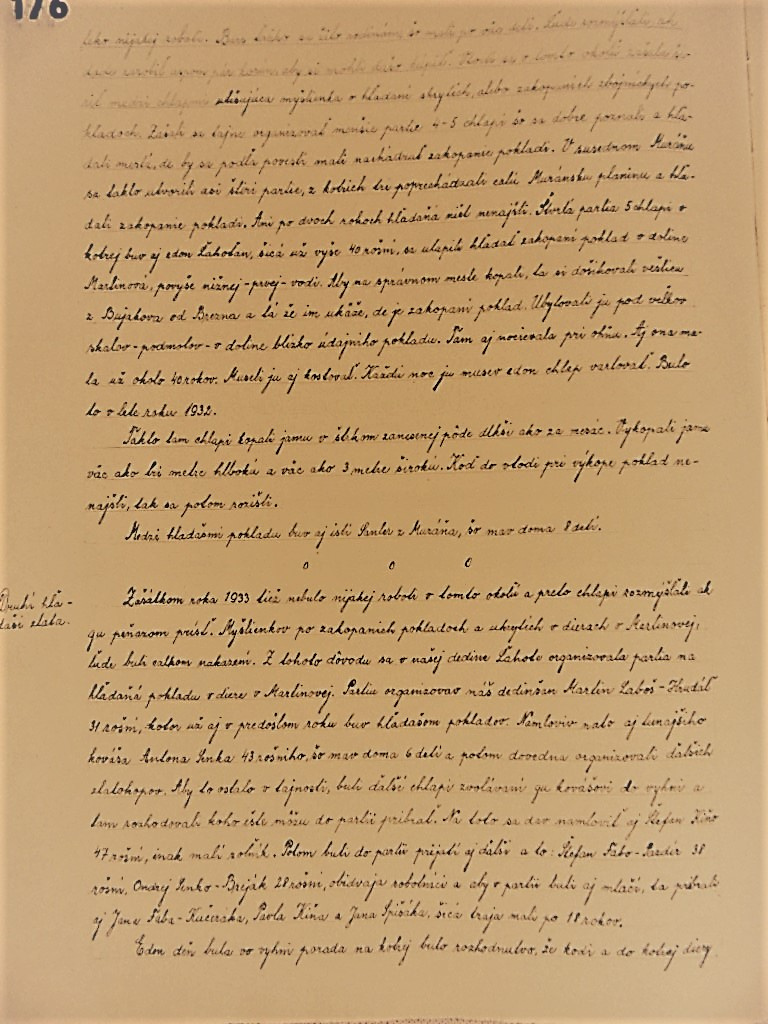 176
lko nijakej roboti. Bars ťažko sa žilo rodinám, šo mali po vác detí. Lude rozmíšlali ak
uťišujúca myšlienka o hladaní skrytích, alebo zakopaních zbojníckych po-
kladoch. Začali sa tajne organizovať menšie partie 4-5 chlapi šo sa dobre poznali a hla-
dali mestá, de by sa podla povesti mali nachádzať zakopanie pokladi. V susednom Muráňu
sa takto utvorili asi štiri partie, z kotrích tri poprechádzali celú Muránsku planinu a hla-
dali zakopanie pokladi. Ani po dvoch rokoch hladaňa ništ nenajšli. Štvrtá partia 5 chlapi v
kotrej buv aj edon Lahoťan, šicá už vyše 40 rošní, sa ulapili hladať zakopaní poklad v doline
Martinová, povyše nižnej-prvej-vodi. Aby na správnom meste kopali, ta si došikovali vešticu
z Bujakova od Brezna a tá že im ukáže, de je zakopaní poklad. Ubytovali ju pod velkov
skalov-podmolov-v doline blízko údajního pokladu. Tam aj nocievala pri ohňu. Aj ona ma-
la už okolo 40 rokov. Museli ju aj kostovať. Každú noc ju musev edon chlap vartovať. Bulo
to v lete roku 1932.
Takto tam chlapi kopali jamu v štrkom zanesenej pôde dlhši ako za mesác. Vykopali jamu
vác ako tri metre hlbokú a vác ako 3 metre širokú. Koď do vtodi pri výkope poklad ne-
najšli, tak sa potom rozišli.
Medzi hladašmi pokladu buv aj istí Sanler z Muráňa, šo mav doma 8 detí.
o o o
Druhí hla-
daši zlata.
Zášátkom roka 1933 tiež nebulo nijakej roboti v tomto okolí a preto chlapi rozmýšlali ak
gu peňazom prísť. Myšlienkov po zakopaních pokladoch a ukrytích v dierach v Martinovej,
lude buli celkom nakazení. Z tohoto dôvodu sa v našej dedine Lahote organizovala partia na
hladaňá pokladu v diere v Martinovej. Partiu organizovav náš dedinšan Martin Laboš-Hrudál
31 rošní, kotor už aj v predošlom roku buv hladašom pokladov. Namluviv nato aj tunajšího
kováša Antona Senka 43 rošního, šo mav doma 6 detí a potom dovedna organizovali dalších
zlatokopov. Aby to ostalo v tajnosti, buli další chlapi zvolávaní gu kovášovi do vyhni a
tam rozhodovali koho ešte môžu do partii pribrať. Na toto sa dav namluviť aj Štefan Kiňo
47 rošní, inak malí rolník. Potom buli do partii prijatí aj další a to: Štefan Fabo-Pazdír 38
rošní, Ondrej Senko-Breják 28 rošní, obidvaja robotníci a aby v partii buli aj mlačí, ta pribrali
aj Jana Faba-Kučeráka, Pavla Kiňa a Jana Spišáka, šicá traja mali po 18 rokov.
Eden děň bula vo vyhni porada na kotrej bulo rozhodnutvo, že kodi a do kotrej diery